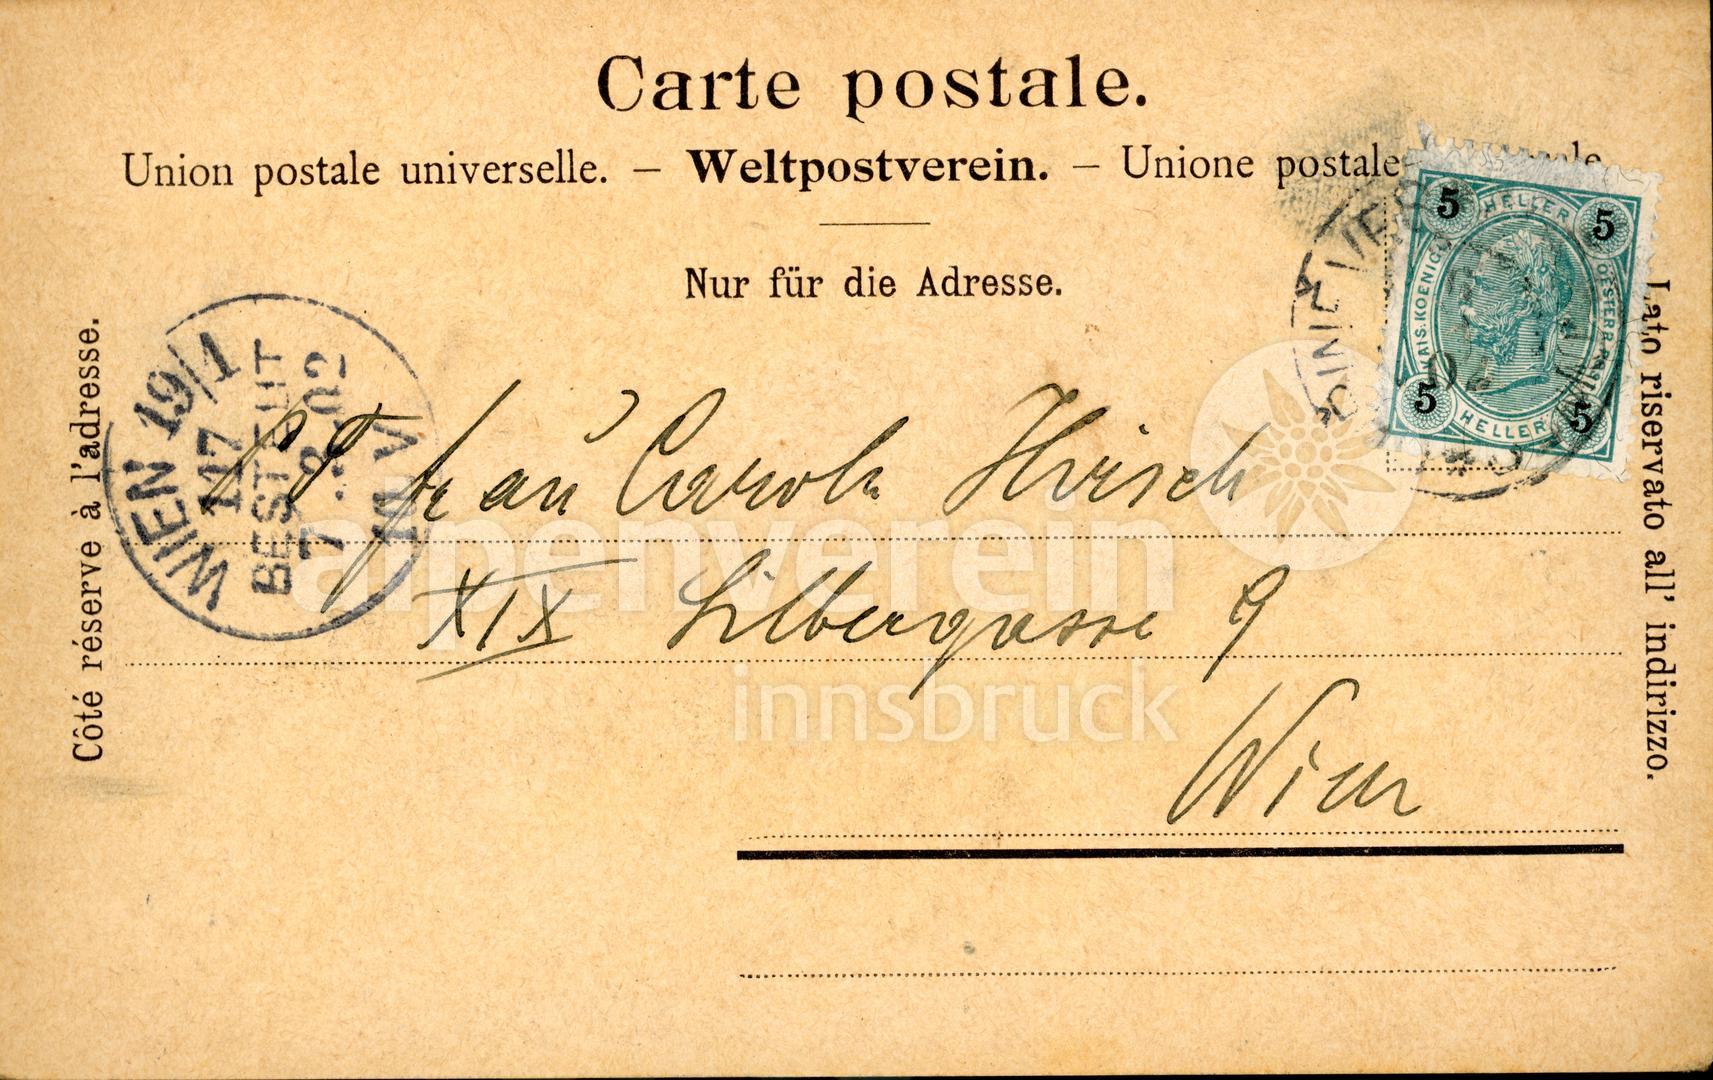 Carte postale.
Union postale universelle. – Weltpostverein. – Unione postale
Nur für die Adresse.
Côté réservé à l'adresse.
Lato riservato all' indirizzo.
WIEN 19/1
117
BESTELLT
7.3.02
10.V
5 HELLER 5
KAIS. KOENIGL. OESTERR. POST
5 HELLER 5
P T Frau Carola Hirsch
XIX Silbergasse 9
Wien
alpenverein
innsbruck